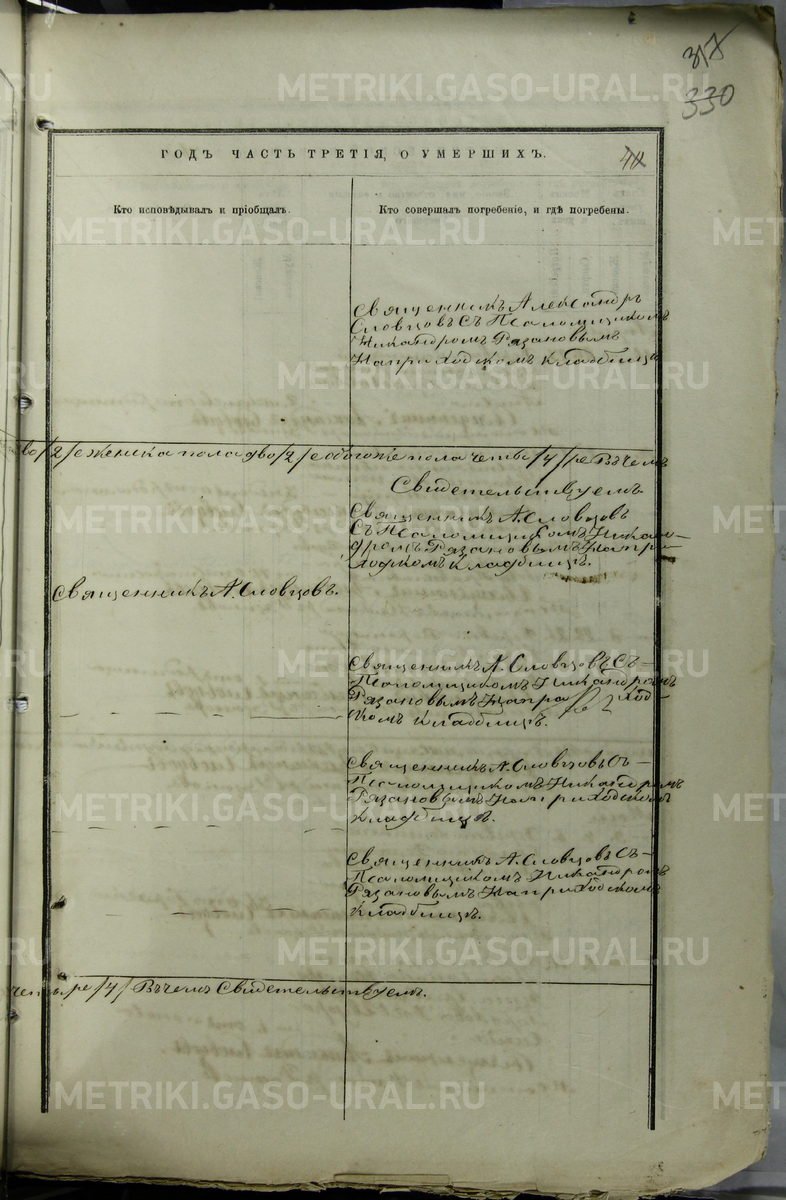 317
330
ГОДЪ ЧАСТЬ ТРЕТІЯ, О УМЕРШИХЪ.
Кто исповѣдывалъ и пріобщалъ.
Кто совершалъ погребеніе, и гдѣ погребены.
Священникъ Александръ
Словцовъ съ Псаломщикомъ
Никандромъ Рязановымъ
На приходскомъ кладбищѣ
во /2/ е женска пола два /2/ е обоего же пола четы /4/ ре Въ чемъ
Свидетельствуемъ.
Священникъ А. Словцовъ
Съ Псаломщикомъ Никан-
дромъ Рязановымъ На при-
ходскомъ кладбищѣ.
Священникъ А. Словцовъ.
Священникъ А. Словцовъ Съ
Псаломщикомъ Никандромъ
Рязановымъ На при ход-
скомъ кладбищѣ.
Священникъ А. Словцовъ Съ
Псаломщикомъ Никандромъ
Рязановымъ На приходскомъ
кладбищѣ.
Священникъ А. Словцовъ Съ
Псаломщикомъ Никандромъ
Рязановымъ На приходскомъ
кладбищѣ.
четыре /4/ Въ чемъ Свидетельствуемъ.
METRIKI.GASO-URAL.RU